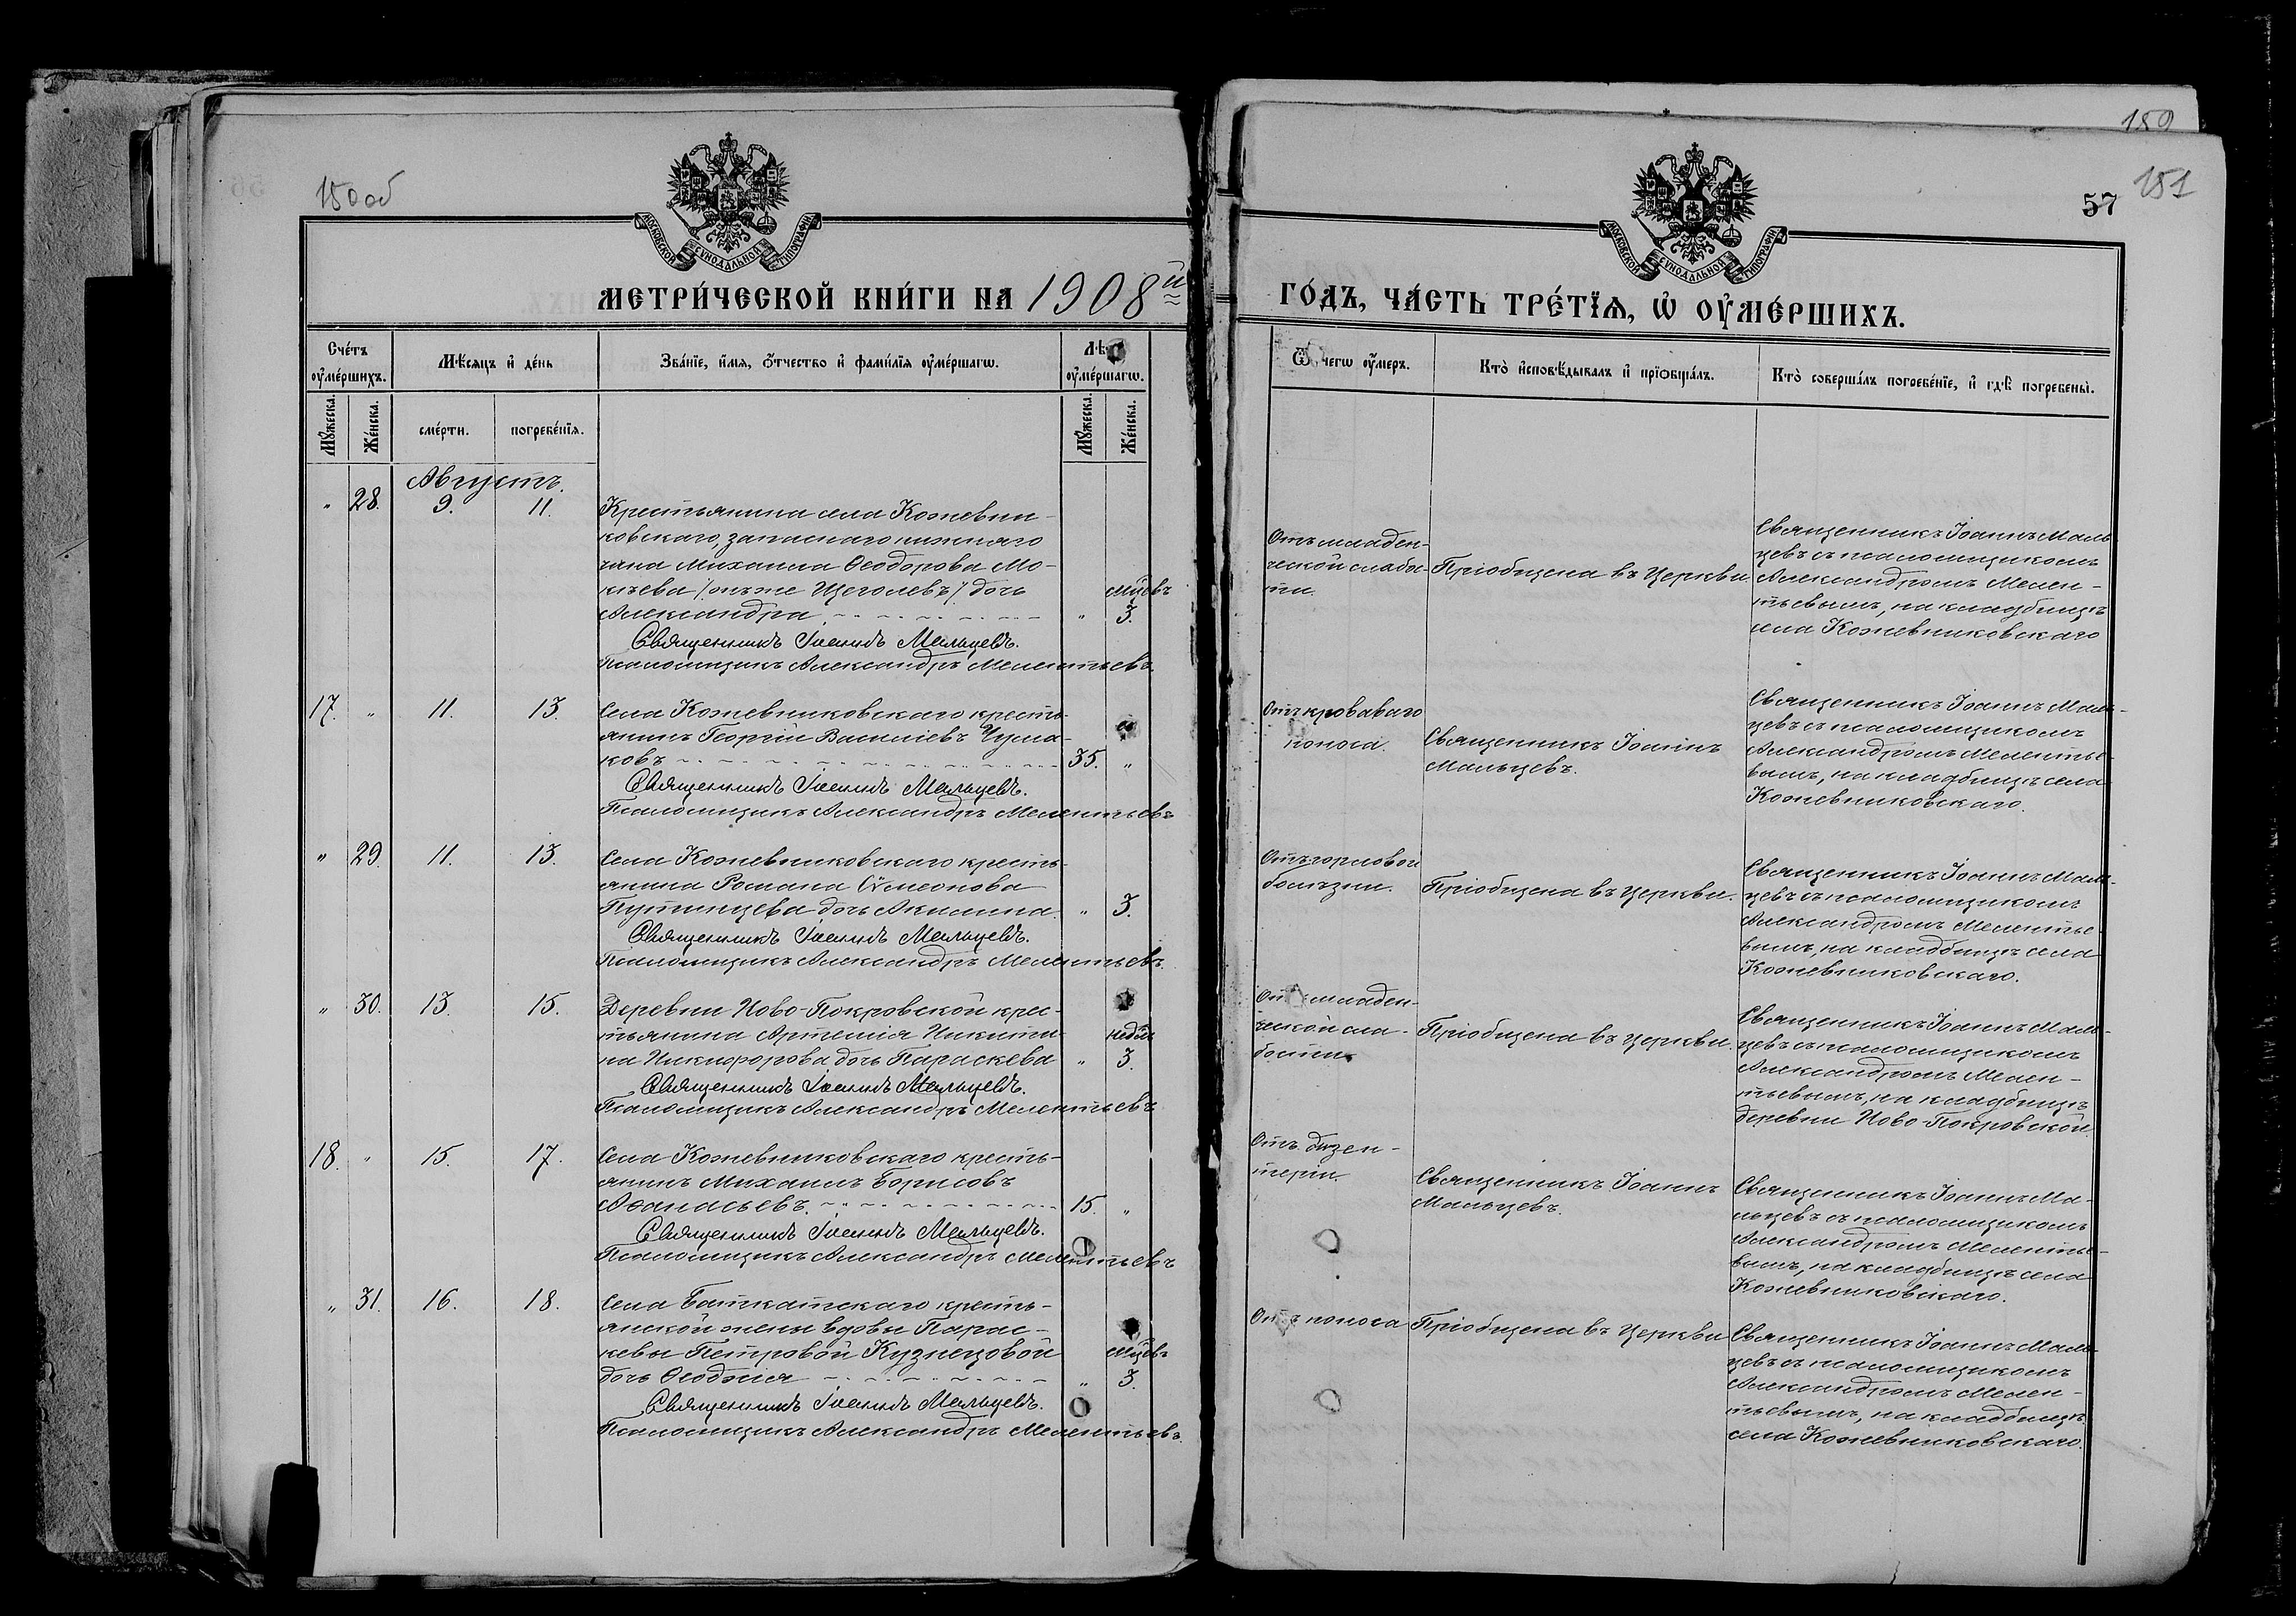 150об
МОСКОВСКОЙ СѴНОДАЛЬНОЙ ТИПОГРАФІИ
МЕТРИ́ЧЕСКОЙ КНИ́ГИ НА 1908й
Сче́тъ ᲂу҆ме́ршихъ.
Мѣ́сяцъ и҆ де́нь
Зва́нїе, и҆́мя, ѻ҆́тчество и҆ фамѝлїя ᲂу҆ме́ршагѡ.
Лѣ ᲂу҆ме́ршагѡ.
Мꙋ́жеска.
Же́нска.
сме́рти.
погребе́нїя.
Мꙋ́жеска.
Же́нска.
Августъ.
" 28. 9. 11.
Крестьянина села Кожевни-
ковскаго, запаснаго нижняго
чина Михаила Ѳеодорова Мо-
кѣева /онъ же Щеголевъ/ дочь мцѣвъ
Александра " 3.
Священникъ Іоаннъ Мальцевъ.
Псаломщикъ Александръ Мелентьевъ.
17. " 11. 13.
Села Кожевниковскаго кресть-
янинъ Георгій Василіевъ Чума-
ковъ 35. "
Священникъ Іоаннъ Мальцевъ.
Псаломщикъ Александръ Мелентьевъ
" 29. 11. 13.
Села Кожевниковскаго кресть-
янина Романа Сѵмеонова
Путинцева дочь Акилина. " 3.
Священникъ Іоаннъ Мальцевъ.
Псаломщикъ Александръ Мелентьевъ.
" 30. 13. 15.
Деревни Ново-Покровской крес-
тьянина Артемія Никити- недѣл
на Никифорова дочь Параскева " 3.
Священникъ Іоаннъ Мальцевъ.
Псаломщикъ Александръ Мелентьевъ
18. " 15. 17.
Села Кожевниковскаго кресть-
янинъ Михаилъ Борисовъ
Аѳанасьевъ. 15. "
Священникъ Іоаннъ Мальцевъ.
Псаломщикъ Александръ Мелентьевъ
" 31. 16. 18.
Села Баткатскаго кресть-
янской жены вдовы Парас-
кевы Петровой Кузнецовой мцѣвъ
дочь Ѳеодосія " 3.
Священникъ Іоаннъ Мальцевъ.
Псаломщикъ Александръ Мелентьевъ.
159
151
57
МОСКОВСКОЙ СѴНОДАЛЬНОЙ ТИПОГРАФІИ
ГО́ДЪ, ЧА́СТЬ ТРЕ́ТЇѦ, Ѡ҆ ОУ҆МЕ́РШИХЪ.
Ѿ чегѡ ᲂу҆́меръ.
Кто̀ и҆сповѣ́дывалъ и҆ прїѡбща́лъ.
Кто̀ соверша́лъ погребе́нїе, и҆ гдѣ̀ погребены̀.
Отъ младен-
ческой слабо-
сти.
Пріобщена въ Церкви
Священникъ Іоаннъ Маль
цевъ съ псаломщикомъ
Александромъ Мелен-
тьевымъ, на кладбищѣ
села Кожевниковскаго
Отъ кроваваго
поноса.
Священникъ Іоаннъ
Мальцевъ.
Священникъ Іоаннъ Маль-
цевъ съ псаломщикомъ
Александромъ Мелентье-
вымъ, на кладбищѣ села
Кожевниковскаго.
Отъ горловой
болѣзни.
Пріобщена въ Церкви.
Священникъ Іоаннъ Маль-
цевъ съ псаломщикомъ
Александромъ Мелентье-
вымъ, на кладбищѣ села
Кожевниковскаго.
Отъ младен-
ческой сла-
бости.
Пріобщена въ Церкви.
Священникъ Іоаннъ Маль-
цевъ съ псаломщикомъ
Александромъ Мелен-
тьевымъ, на кладбищѣ
деревни Ново-Покровской.
Отъ дизен-
теріи.
Священникъ Іоаннъ
Мальцевъ.
Священникъ Іоаннъ Ма-
льцевъ съ псаломщикомъ
Александромъ Мелентье-
вымъ, на кладбищѣ села
Кожевниковскаго.
Отъ поноса
Пріобщена въ Церкви
Священникъ Іоаннъ Маль-
цевъ съ псаломщикомъ
Александромъ Мелен-
тьевымъ, на кладбищѣ
села Кожевниковскаго.